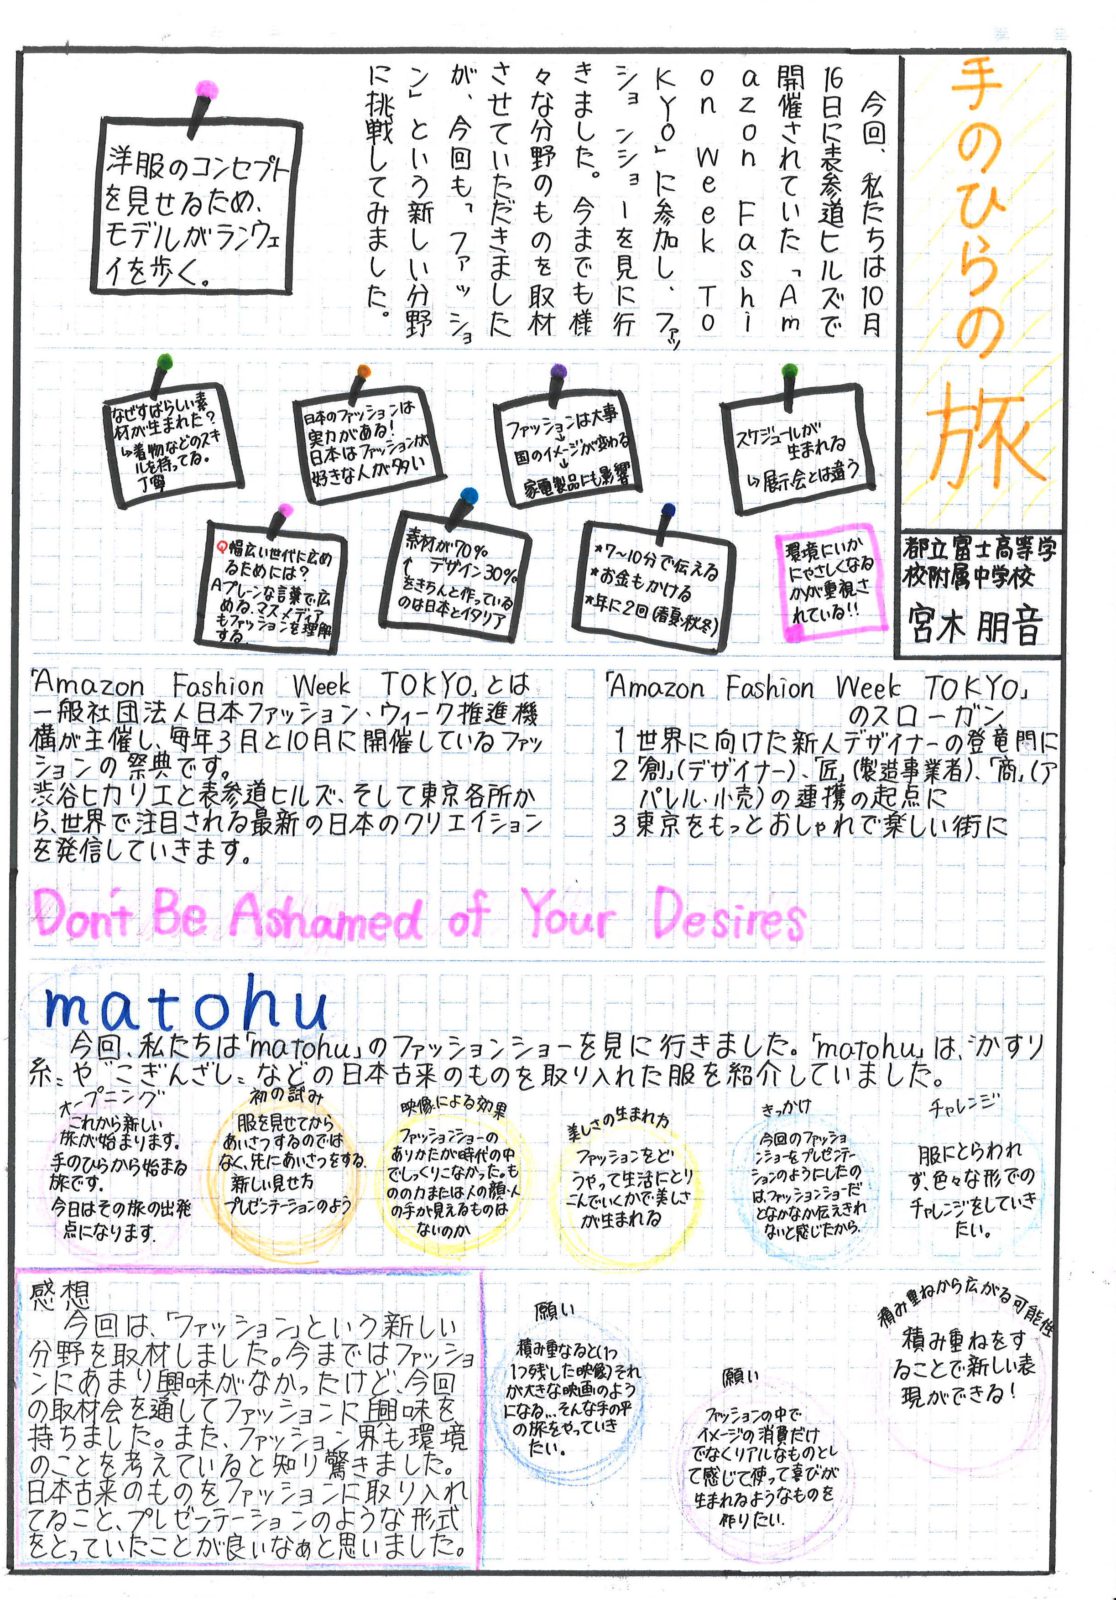 手のひらの旅
都立富士高等学
校附属中学校
宮木朋音
今回、私たちは10月
16日に表参道ヒルズで
開催されていた「Am
azon Fashi
on Week TO
KYO」に参加し、ファッ
ションショーを見に行
きました。今までも様
々な分野のものを取材
させていただきました
が、今回も「ファッショ
ン」という新しい分野
に挑戦してみました。
洋服のコンセプト
を見せるため、
モデルがランウェ
イを歩く。
なぜすばらしい素
材が生まれた?
↳着物などのスキ
ルを持ってる。
丁寧
日本のファッションは
実力がある!
日本はファッションが
好きな人が多い
ファッションは大事
↓
国のイメージが変わる
↓
家電製品にも影響
スケジュールが
生まれる
↳展示会とは違う
Q幅広い世代に広め
るためには?
Aプレーンな言葉で広
める。マスメディア
もファッションを理解
する
素材が70%
↑ デザイン30%
をきちんと作っている
のは日本とイタリア
*7~10分で伝える
*お金もかける
*年に2回(春夏・秋冬)
環境にいか
にやさしくなる
かが重視さ
れている!!
「Amazon Fashion Week TOKYO」とは
一般社団法人日本ファッション・ウィーク推進機
構が主催し、毎年3月と10月に開催しているファッ
ションの祭典です。
渋谷ヒカリエと表参道ヒルズ、そして東京各所か
ら、世界で注目される最新の日本のクリエイション
を発信していきます。
「Amazon Fashion Week TOKYO」
のスローガン
1 世界に向けた新人デザイナーの登竜門に
2 「創」(デザイナー)、「匠」(製造事業者)、「商」(ア
パレル・小売)の連携の起点に
3 東京をもっとおしゃれで楽しい街に
Don't Be Ashamed of Your Desires
matohu
今回、私たちは「matohu」のファッションショーを見に行きました。「matohu」は、〝かすり
糸〟や〝こぎんざし〟などの日本古来のものを取り入れた服を紹介していました。
オープニング
これから新しい
旅が始まります。
手のひらから始まる
旅です。
今日はその旅の出発
点になります。
初の試み
服を見せてから
あいさつするのでは
なく、先にあいさつをする。
新しい見せ方
プレゼンテーションのよう
映像による効果
ファッションショーの
ありかたが時代の中
でしっくりこなかった。も
のの力または人の顔・人
の手が見えるものは
ないのか
美しさの生まれ方
ファッションをど
うやって生活にとり
こんでいくかで美しさ
が生まれる
きっかけ
今回のファッショ
ンショーをプレゼンテー
ションのようにしたの
は、ファッションショーだ
となかなか伝えきれ
ないと感じたから。
チャレンジ
服にとらわれ
ず、色々な形での
チャレンジをしていき
たい。
感想
今回は、「ファッション」という新しい
分野を取材しました。今まではファッショ
ンにあまり興味がなかったけど、今回
の取材会を通してファッションに興味を
持ちました。また、ファッション界も環境
のことを考えていると知り驚きました。
日本古来のものをファッションに取り入れ
てること、プレゼンテーションのような形式
をとっていたことが良いなぁと思いました。
願い
積み重なると(1つ
1つ残した映像)それ
が大きな映画のよう
になる...そんな手の平
の旅をやっていき
たい。
願い
ファッションの中で
イメージの消費だけ
でなくリアルなものとし
て感じて、使って喜びが
生まれるようなものを
作りたい。
積み重ねから広がる可能性
積み重ねをす
ることで新しい表
現ができる!